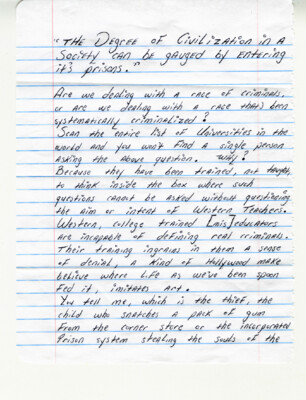 "THE DEGREE OF CIVILIZATION IN A
SOCIETY CAN BE GAUGED BY ENTERING
IT'S PRISONS."
Are we dealing with a race of criminals,
or are we dealing with a race that's been
systematically criminalized?
Scan the entire list of Universities in the
world and you won't find a single person
asking the above question. Why?
Because they have been trained, not taught,
to think inside the box where such
questions cannot be asked without questioning
the aim or intent of Western Teachers.
Western, college trained educators
are incapable of defining real criminals.
Their training ingrains in them a sense
of denial, a kind of Hollywood make
believe where life as we've been spoon
fed it, imitates art.
You tell me, which is the thief, the
child who snatches a pack of gum
from the corner store or the incorporated
Prison system stealing the souls of the